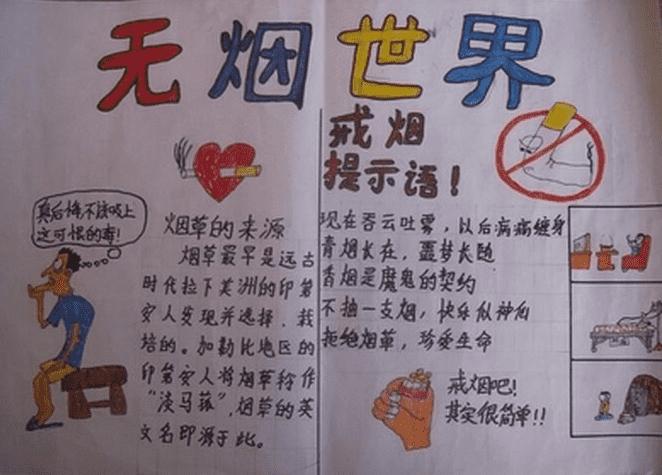 无烟世界
真后悔不该吸上
这可恨的毒!
烟草的来源
烟草最早是远古
时代拉丁美洲的印第
安人发现并选择、栽
培的。加勒比地区的
印第安人将烟草称作
“淡马菰”,烟草的英
文名即源于此。
戒烟
提示语!
现在吞云吐雾，以后病痛缠身
青烟长在，噩梦长随
香烟是魔鬼的契约
不抽一支烟，快乐似神仙
拒绝烟草，珍爱生命
戒烟吧!
其实很简单!!